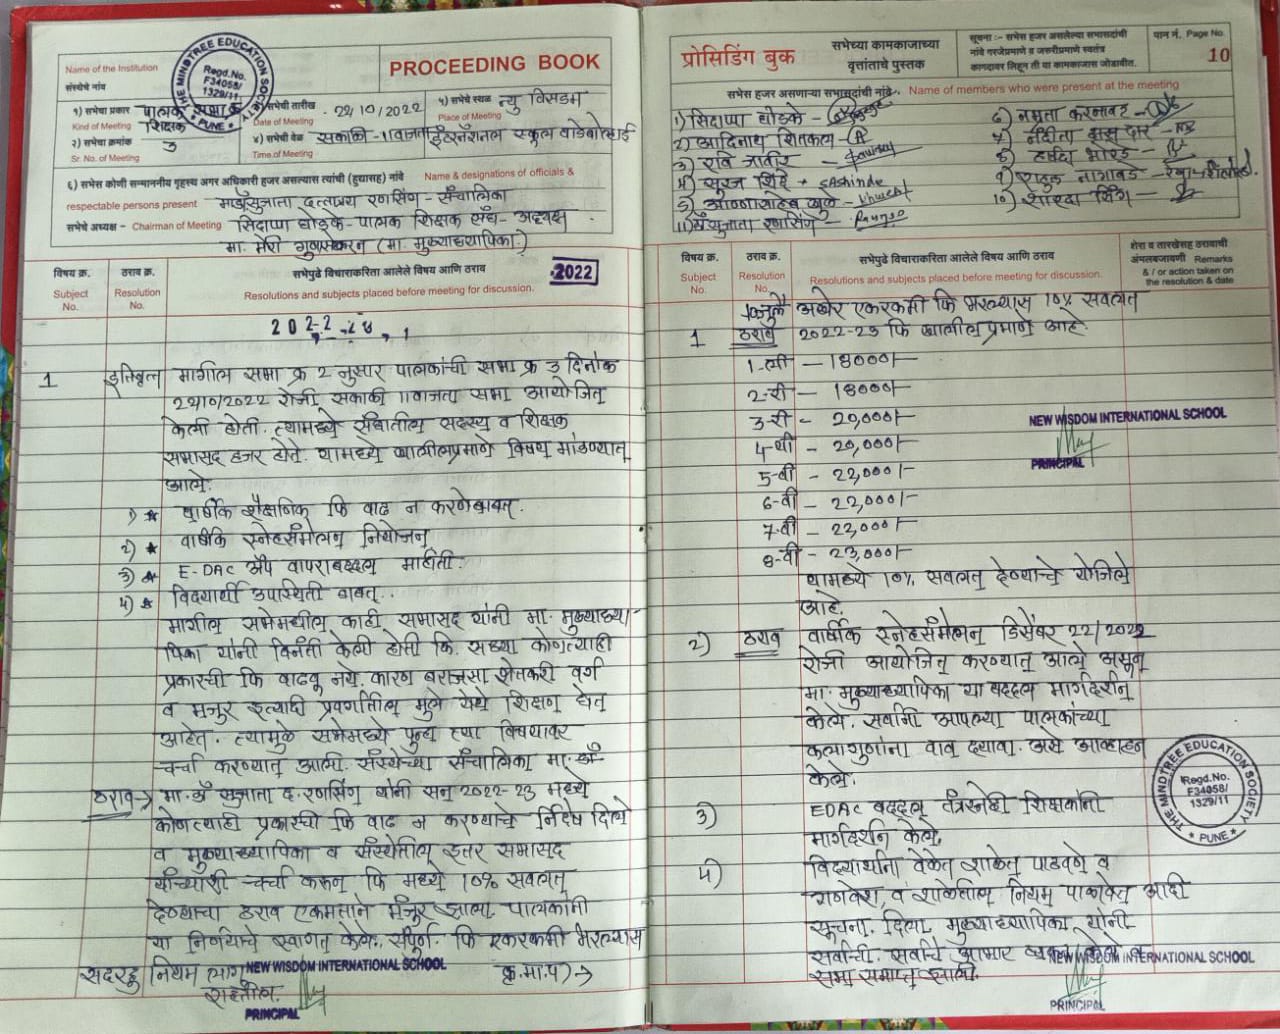 Name of the Institution
संस्थेचे नांव
THE MINDTREE EDUCATION SOCIETY
Regd.No.
F34058/
1329/11
* PUNE *
PROCEEDING BOOK
१) सभेचा प्रकार पालक सभा
Kind of Meeting शिक्षक
सभेची तारीख 22/10/2022
Date of Meeting
५) सभेचे स्थळ न्यु विसडम
Place of Meeting
२) सभेचा क्रमांक 3
Sr. No. of Meeting
४) सभेची वेळ सकाळी 11 वाजता
Time of Meeting
इंटरनॅशनल स्कूल वाडेबोल्हाई
६) सभेस कोणी सन्माननीय गृहस्थ अगर अधिकारी हजर असल्यास त्यांची (हुद्यासह) नांवे Name & designations of officials &
respectable persons present मा. सुजाता दत्तात्रय रणसिंग - संचालिका
सभेचे अध्यक्ष - Chairman of Meeting सिदाप्पा घोडके - पालक शिक्षक संघ - अध्यक्ष
मा. मेरी गुणसेकरन (मा. मुख्याध्यापिका)
विषय क्र. ठराव क्र. सभेपुढे विचाराकरिता आलेले विषय आणि ठराव 2022
Subject Resolution Resolutions and subjects placed before meeting for discussion.
No. No.
1 इतिवृत्त मागील सभा क्र 2 नुसार पालकांची सभा क्र 3 दिनांक
22/10/2022 रोजी सकाळी 11 वाजता सभा आयोजित
केली होती. त्यामध्ये संघातील सदस्य व शिक्षक
सभासद हजर होते. यामध्ये खालीलप्रमाणे विषय मांडण्यात
आले.
1) ★ वार्षिक शैक्षणिक फि वाढ न करणेबाबत.
2) ★ वार्षिक स्नेहसंमेलन नियोजन
3) ★ E-DAC ॲप वापराबद्दल माहीती.
4) ★ विद्यार्थी उपस्थिती बाबत.
मागील सभेमधील काही सभासद यांनी मा. मुख्याध्या-
पिका यांनी विनंती केली होती कि. सध्या कोणत्याही
प्रकारची फि वाढवू नये. कारण बराजसा शेतकरी वर्ग
व मजुर इत्यादी प्रवर्गातील मुले येथे शिक्षण घेत
आहेत. त्यामुळे सभेमध्ये पुन्हा त्या विषयावर
चर्चा करण्यात आली. संस्थेच्या संचालिका मा. डॉ.
ठराव→ मा. डॉ सुजाता द. रणसिंग यांनी सन 2022-23 मध्ये
कोणत्याही प्रकारची फि वाढ न करण्याचे निर्देश दिले
व मुख्याध्यापिका व संस्थेतील इतर सभासद
यांच्याशी चर्चा करून फि मध्ये 10% सवलत
देण्याचा ठराव एकमताने मंजुर झाला. पालकांनी
या निर्णयाचे स्वागत केले. संपूर्ण फि एकरकमी भरल्यास
सदरहू नियम लागू NEW WISDOM INTERNATIONAL SCHOOL क्र.मा.प) →
राहतील.
PRINCIPAL
प्रोसिडिंग बुक
सभेच्या कामकाजाच्या
वृत्तांताचे पुस्तक
सूचना :- सभेस हजर असलेल्या सभासदांची
नांवे गरजेप्रमाणे व जरुरीप्रमाणे स्वतंत्र
कागदावर लिहून ती या कामकाजास जोडावीत.
पान नं. Page No.
10
सभेस हजर असणाऱ्या सभासदांची नांवे - Name of members who were present at the meeting
1) सिदाप्पा घोडके -
2) आदिनाथ शितकल -
3) रवि जावीर -
4) सुरज शिंदे - SAShinde
5) आण्णासाहेब खुळे -
11) सुजाता रणसिंग -
6) नम्रता करमावट -
7) नंदीता
8)
9) राहुल नागावडे -
10) शारदा सिंग -
विषय क्र. ठराव क्र. सभेपुढे विचाराकरिता आलेले विषय आणि ठराव शेरा व तारखेसह ठरावाची
अंमलबजावणी Remarks
Subject Resolution Resolutions and subjects placed before meeting for discussion. & / or action taken on
No. No. the resolution & date
जुलै अखेर एकरकमी फि भरल्यास 10% सवलत
1 ठराव 2022-23 फि खालील प्रमाणे आहे.
1-ली - 18000/-
2-री - 18000/-
3-री - 20,000/-
4-थी - 20,000/-
5-वी - 22,000/-
6-वी - 22,000/-
7-वी - 22,000/-
8-वी - 23,000/-
NEW WISDOM INTERNATIONAL SCHOOL
PRINCIPAL
यामध्ये 10% सवलत देण्याचे योजिले
आहे.
2) ठराव वार्षिक स्नेहसंमेलन डिसेंबर 22/2022
रोजी आयोजित करण्यात आले असून
मा. मुख्याध्यापिका या बद्दल मार्गदर्शन
केले. सर्वांनी आपल्या पालकांच्या
कलागुणांना वाव द्यावा. असे आव्हान
केले.
3) EDAC बद्दल तंत्रस्नेही शिक्षकांनी
मार्गदर्शन केले.
4) विद्यार्थांना वेळेत शाळेत पाठवणे व
गणवेश, व शाळेतील नियम पाळावेत आदी
सूचना दिल्या. मुख्याध्यापिका यांनी
सर्वांची सर्वांचे आभार व्यक्त केले व
सभा समाप्त झाली.
NEW WISDOM INTERNATIONAL SCHOOL
PRINCIPAL
THE MINDTREE EDUCATION SOCIETY
Regd.No.
F34058/
1329/11
* PUNE *